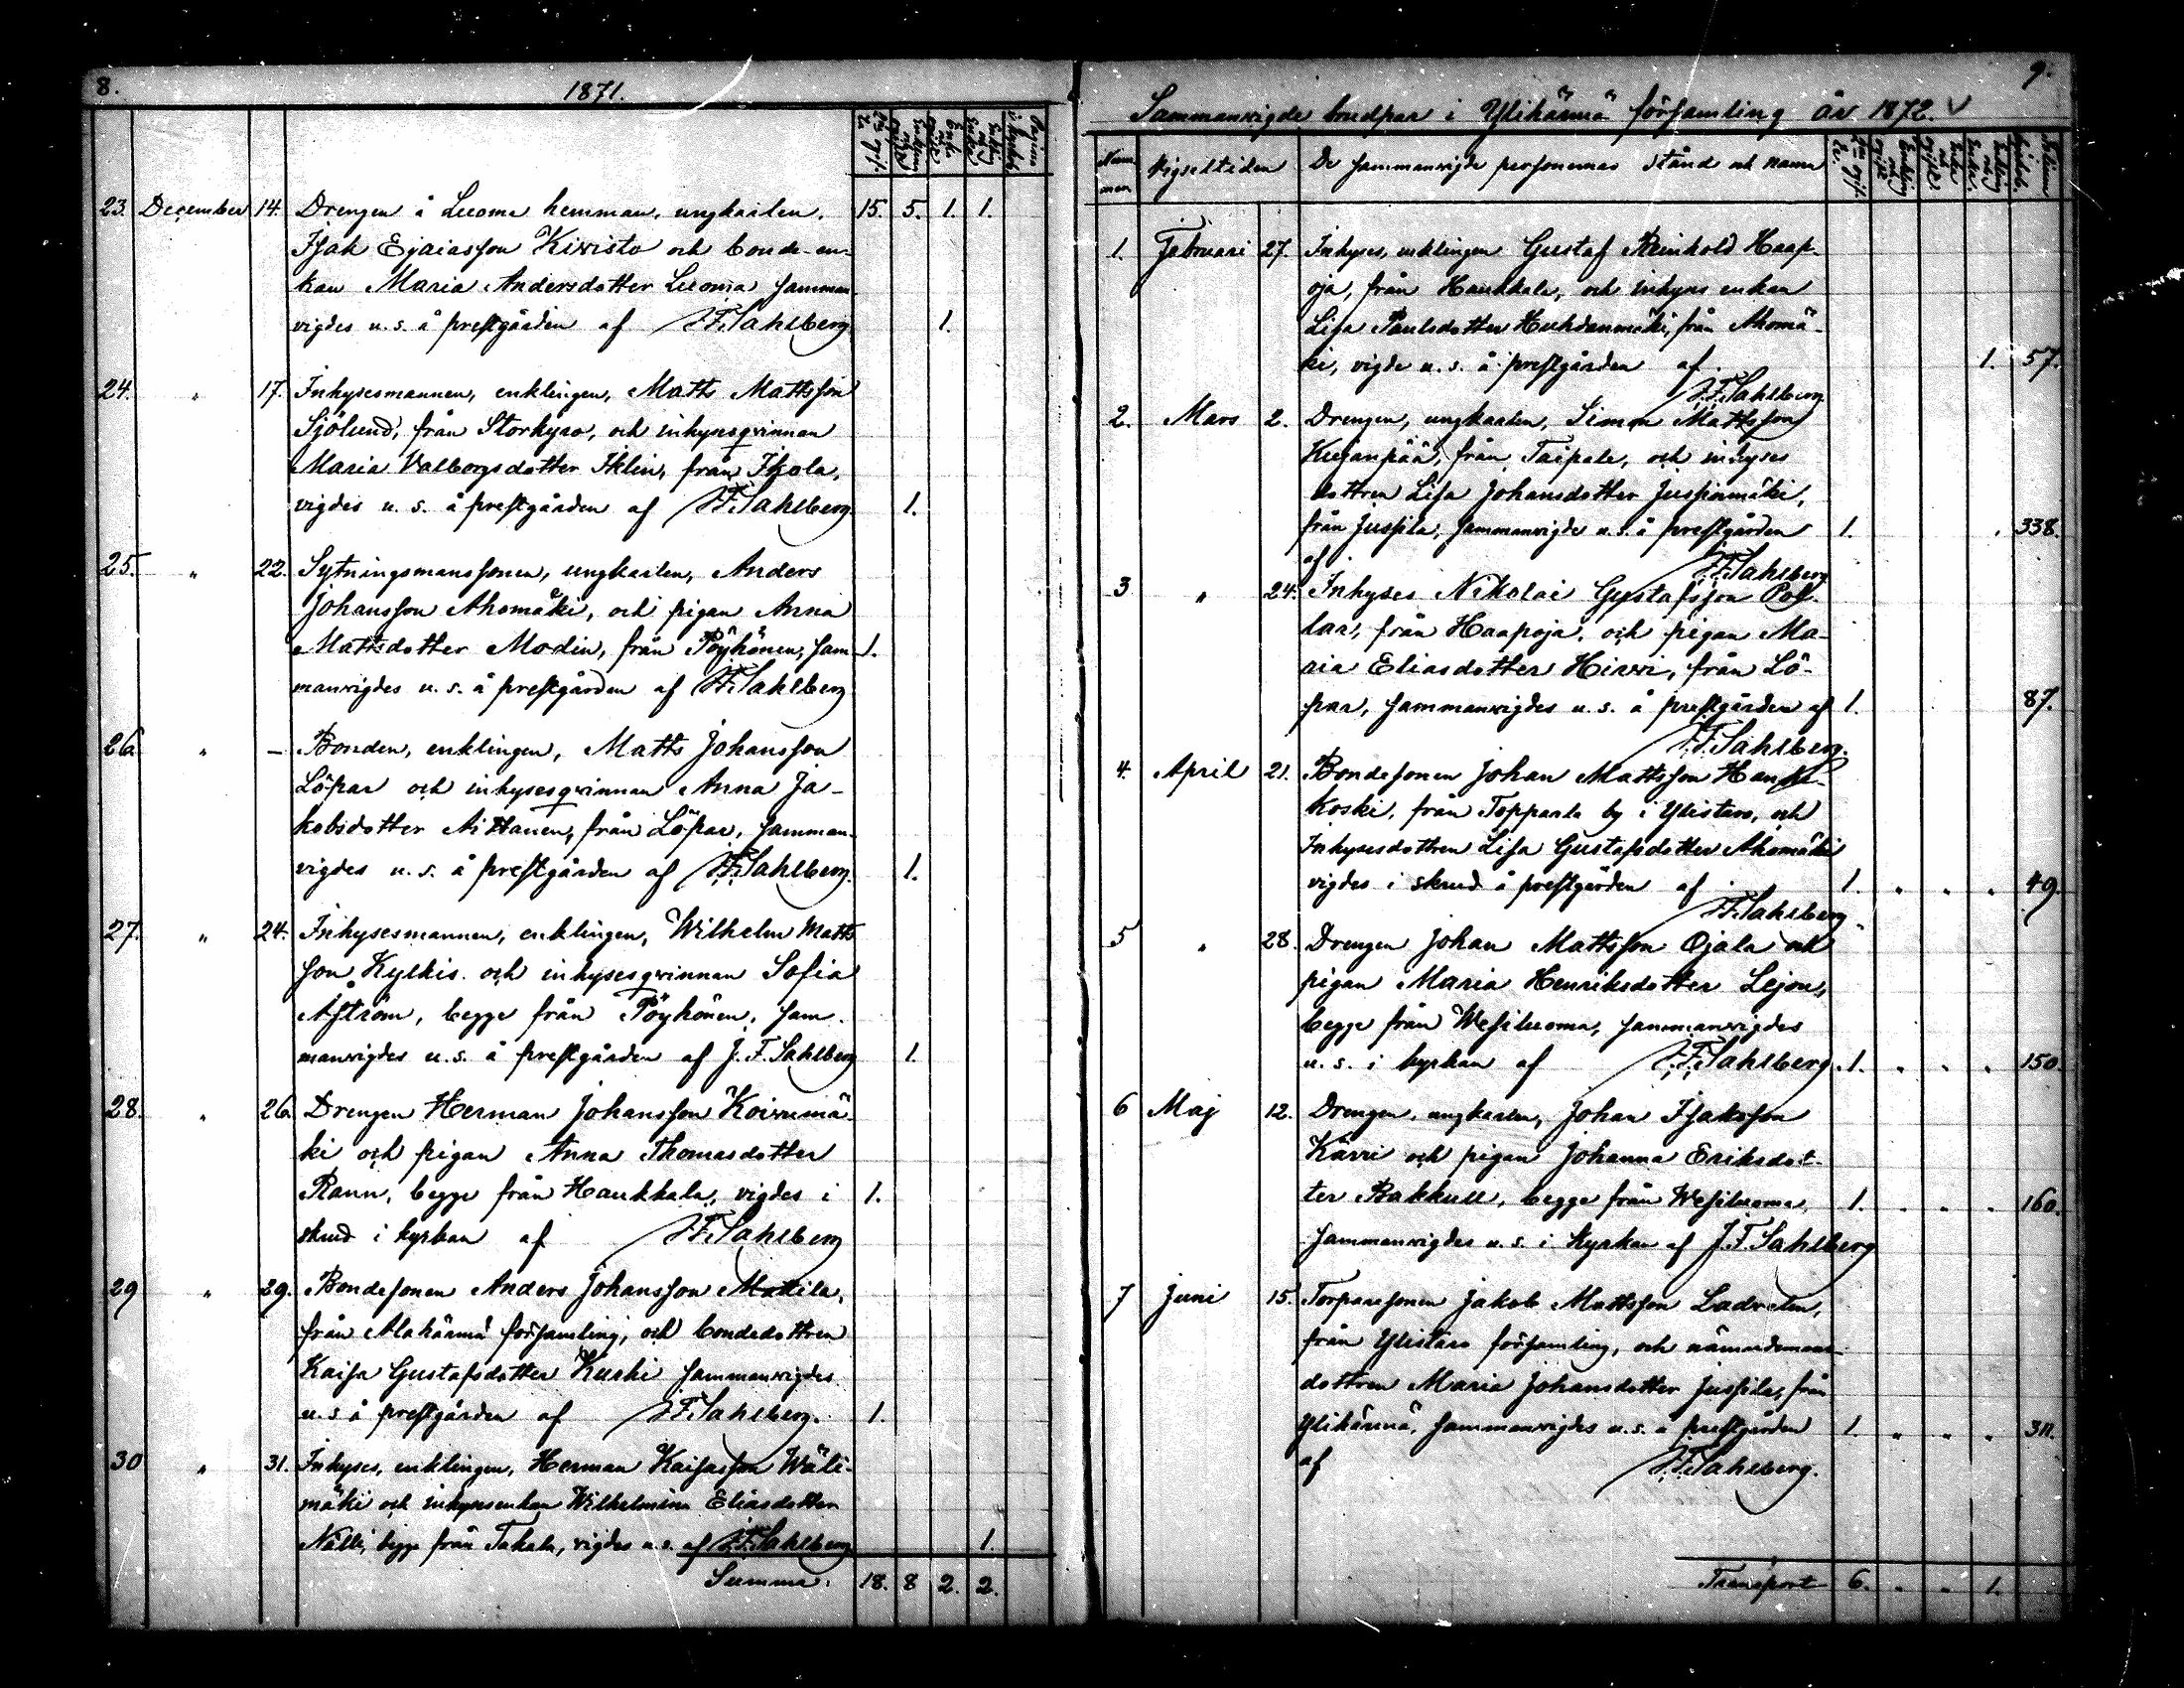 8.
1871.
23. December 14. Drengen å Luoma hemman, ungkarlen, 15. 5. 1. 1.
Isak Esaiasson Kiwisto och bonde-en-
kan Maria Andersdotter Luoma samman-
vigdes u. s. å prestgården af J. F. Sahlberg 1.
24. " 17. Inhysesmannen, enklingen, Matts Mattsson
Sjölund, från Storkyro, och inhysesqvinnan
Maria Valborgsdotter Iklin, från Ikola,
vigdes u. s. å prestgården af J. F. Sahlberg 1.
25. " 22. Sytningsmanssonen, ungkarlen, Anders
Johansson Ahomäki, och pigan Anna
Mattsdotter Modin, från Pöyhönen, sam- 1.
manvigdes u. s. å prestgården af J. F. Sahlberg
26. " – Bonden, enklingen, Matts Johansson
Löpar och inhysesqvinnan Anna Ja-
kobsdotter från Löpar, samman-
vigdes u. s. å prestgården af J. F. Sahlberg. 1.
27. " 24. Inhysesmannen, enklingen, Wilhelm Matts
son Kylkis och inhysesqvinnan Sofia
Åström, begge från Pöyhönen, sam-
manvigdes u. s. å prestgården af J. F. Sahlberg 1.
28. " 26. Drengen Herman Johansson Koivumä-
ki och pigan Anna Thomasdotter
Rann, begge från Haukkala, vigdes i 1.
skrud i kyrkan af J. F. Sahlberg
29 " 29. Bondesonen Anders Johansson Mattila,
från Alahärmä församling, och bondedottren
Kaisa Gustafsdotter Kuski sammanvigdes
u. s. å prestgården af J. F. Sahlberg. 1.
30 " 31. Inhyses, enklingen, Herman Kaisasson Wäli-
mäki och inhysesenkan Wilhelmina Eliasdotter
Nälli, begge från Takala, vigdes u. s. af J. F. Sahlberg 1.
Summa: 18. 8 2. 2.
9.
Sammanvigde brudpar i Ylihärmä församling år 1872.
Num-
mer Vigseltiden De sammanvigde personernas stånd och namn
1. Februari 27. Inhyses, enklingen Gustaf Reinhold Haap-
oja, från Haukkala, och inhyses enkan
Lisa Paulsdotter Huhdanmäki, från Ahomä-
ki, vigde u. s. å prestgården af 1. 57.
J. F. Sahlberg
2. Mars 2. Drengen, ungkarlen, Simon Mattsson
Kujanpää, från Taipale, och inhyses
dottren Lisa Johansdotter Jussinmäki,
från Jussila, sammanvigde u. s. å prestgården 1. 338.
af J. F. Sahlberg
3 " 24. Inhyses Nikolai Gustafsson Pol-
lari, från Haapoja, och pigan Ma-
ria Eliasdotter Hirvi, från Lö-
par, sammanvigdes u. s. å prestgården af 1. 87.
J. F. Sahlberg.
4. April 21. Bondesonen Johan Mattsson
koski, från Topparla by i Ylistaro, och
Inhysesdottren Lisa Gustafsdotter Ahomäki
vigdes i skrud å prestgården af 1. " " " 49.
J. F. Sahlberg
5 " 28. Drengen Johan Mattsson Ojala och
pigan Maria Henriksdotter Lejon,
begge från Wesiluoma, sammanvigdes
u. s. i kyrkan af J. F. Sahlberg. 1. " " " 150.
6 Maj 12. Drengen, ungkarlen, Johan Isaksson
Kärri och pigan Johanna Eriksdot-
ter Rakkull, begge från Wesiluoma, 1. " " " 160.
sammanvigdes u. s. i Kyrkan af J. F. Sahlberg
7 Juni 15. Torparesonen Jakob Mattsson
från Ylistaro församling, och nämndemans-
dottren Maria Johansdotter Jussila, från
Ylihärmä, sammanvigdes u. s. å prestgården 1. " " " 311.
af J. F. Sahlberg.
Transport 6. " " 1.